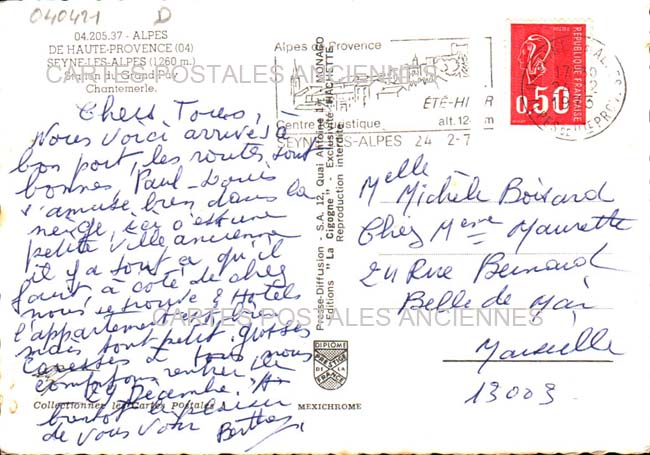 040421 D
04.205.37 - ALPES
DE HAUTE-PROVENCE (04)
SEYNE-LES-ALPES (1.260 m.)
Station du Grand Puy
Chantemerle.
CARTES POSTALES ANCIENNES
Chers Tous,
Nous voici arrivés à
bon port, les routes sont
bonnes Paul-Louis
s'amuse bien dans la
neige, ici c'est une
petite ville ancienne
il y a tout ce qu'il
faut à côté de chez
nous se trouve 2 Hotels
l'appartement est bien
mais tout petit. grosses
Caresses à tous nous
comptons rentrer le
29 Décembre. A
bientôt le plaisir
de vous voir Berthe
Collectionnez les Cartes Postales
Presse-Diffusion - S.A. 12, Quai Antoine 1er, MONACO
Editions "La Cigogne" - Exclusivité HACHETTE
Reproduction interdite
DIPLOME
PRESTIGE
DE LA
FRANCE
MEXICHROME
Alpes de Provence
ÉTÉ-HI R
Centre Touristique alt.12 m
SEYNE-LES-ALPES 24 2-7
REPUBLIQUE FRANÇAISE
0,50
Melle
Michèle Boissard
Chez Mme Maurette
24 Rue Bernard
Belle de Mai
Marseille
13003
CARTES POSTALES ANCIENNES